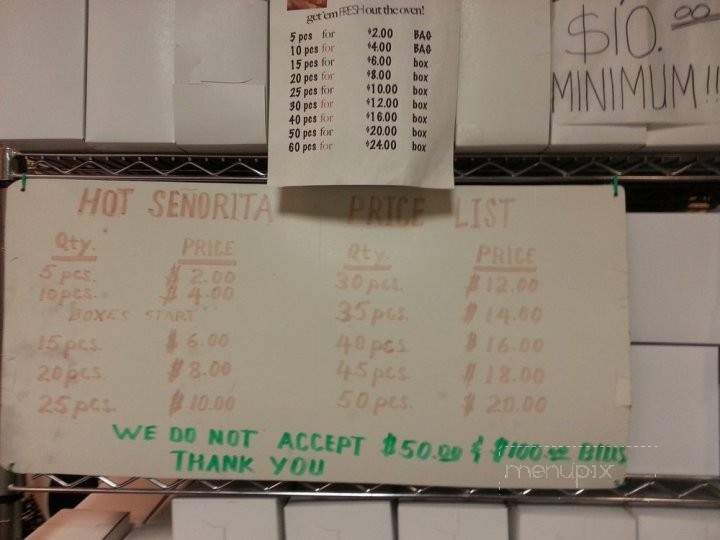 get'em FRESH out the oven!
5 pcs for $2.00 BAG
10 pcs for $4.00 BAG
15 pcs for $6.00 box
20 pcs for $8.00 box
25 pcs for $10.00 box
30 pcs for $12.00 box
40 pcs for $16.00 box
50 pcs for $20.00 box
60 pcs for $24.00 box
$10.00
MINIMUM!!
HOT SEÑORITA PRICE LIST
Qty. PRICE Qty. PRICE
5 pcs. $ 2.00 30 pcs. $ 12.00
10 pcs. $ 4.00
"BOXES START"
35 pcs. $ 14.00
15 pcs. $ 6.00 40 pcs $ 16.00
20 pcs. $ 8.00 45 pcs. $ 18.00
25 pcs. $ 10.00 50 pcs. $ 20.00
WE DO NOT ACCEPT $50.00 & $100.00 Bills
THANK YOU
menupix